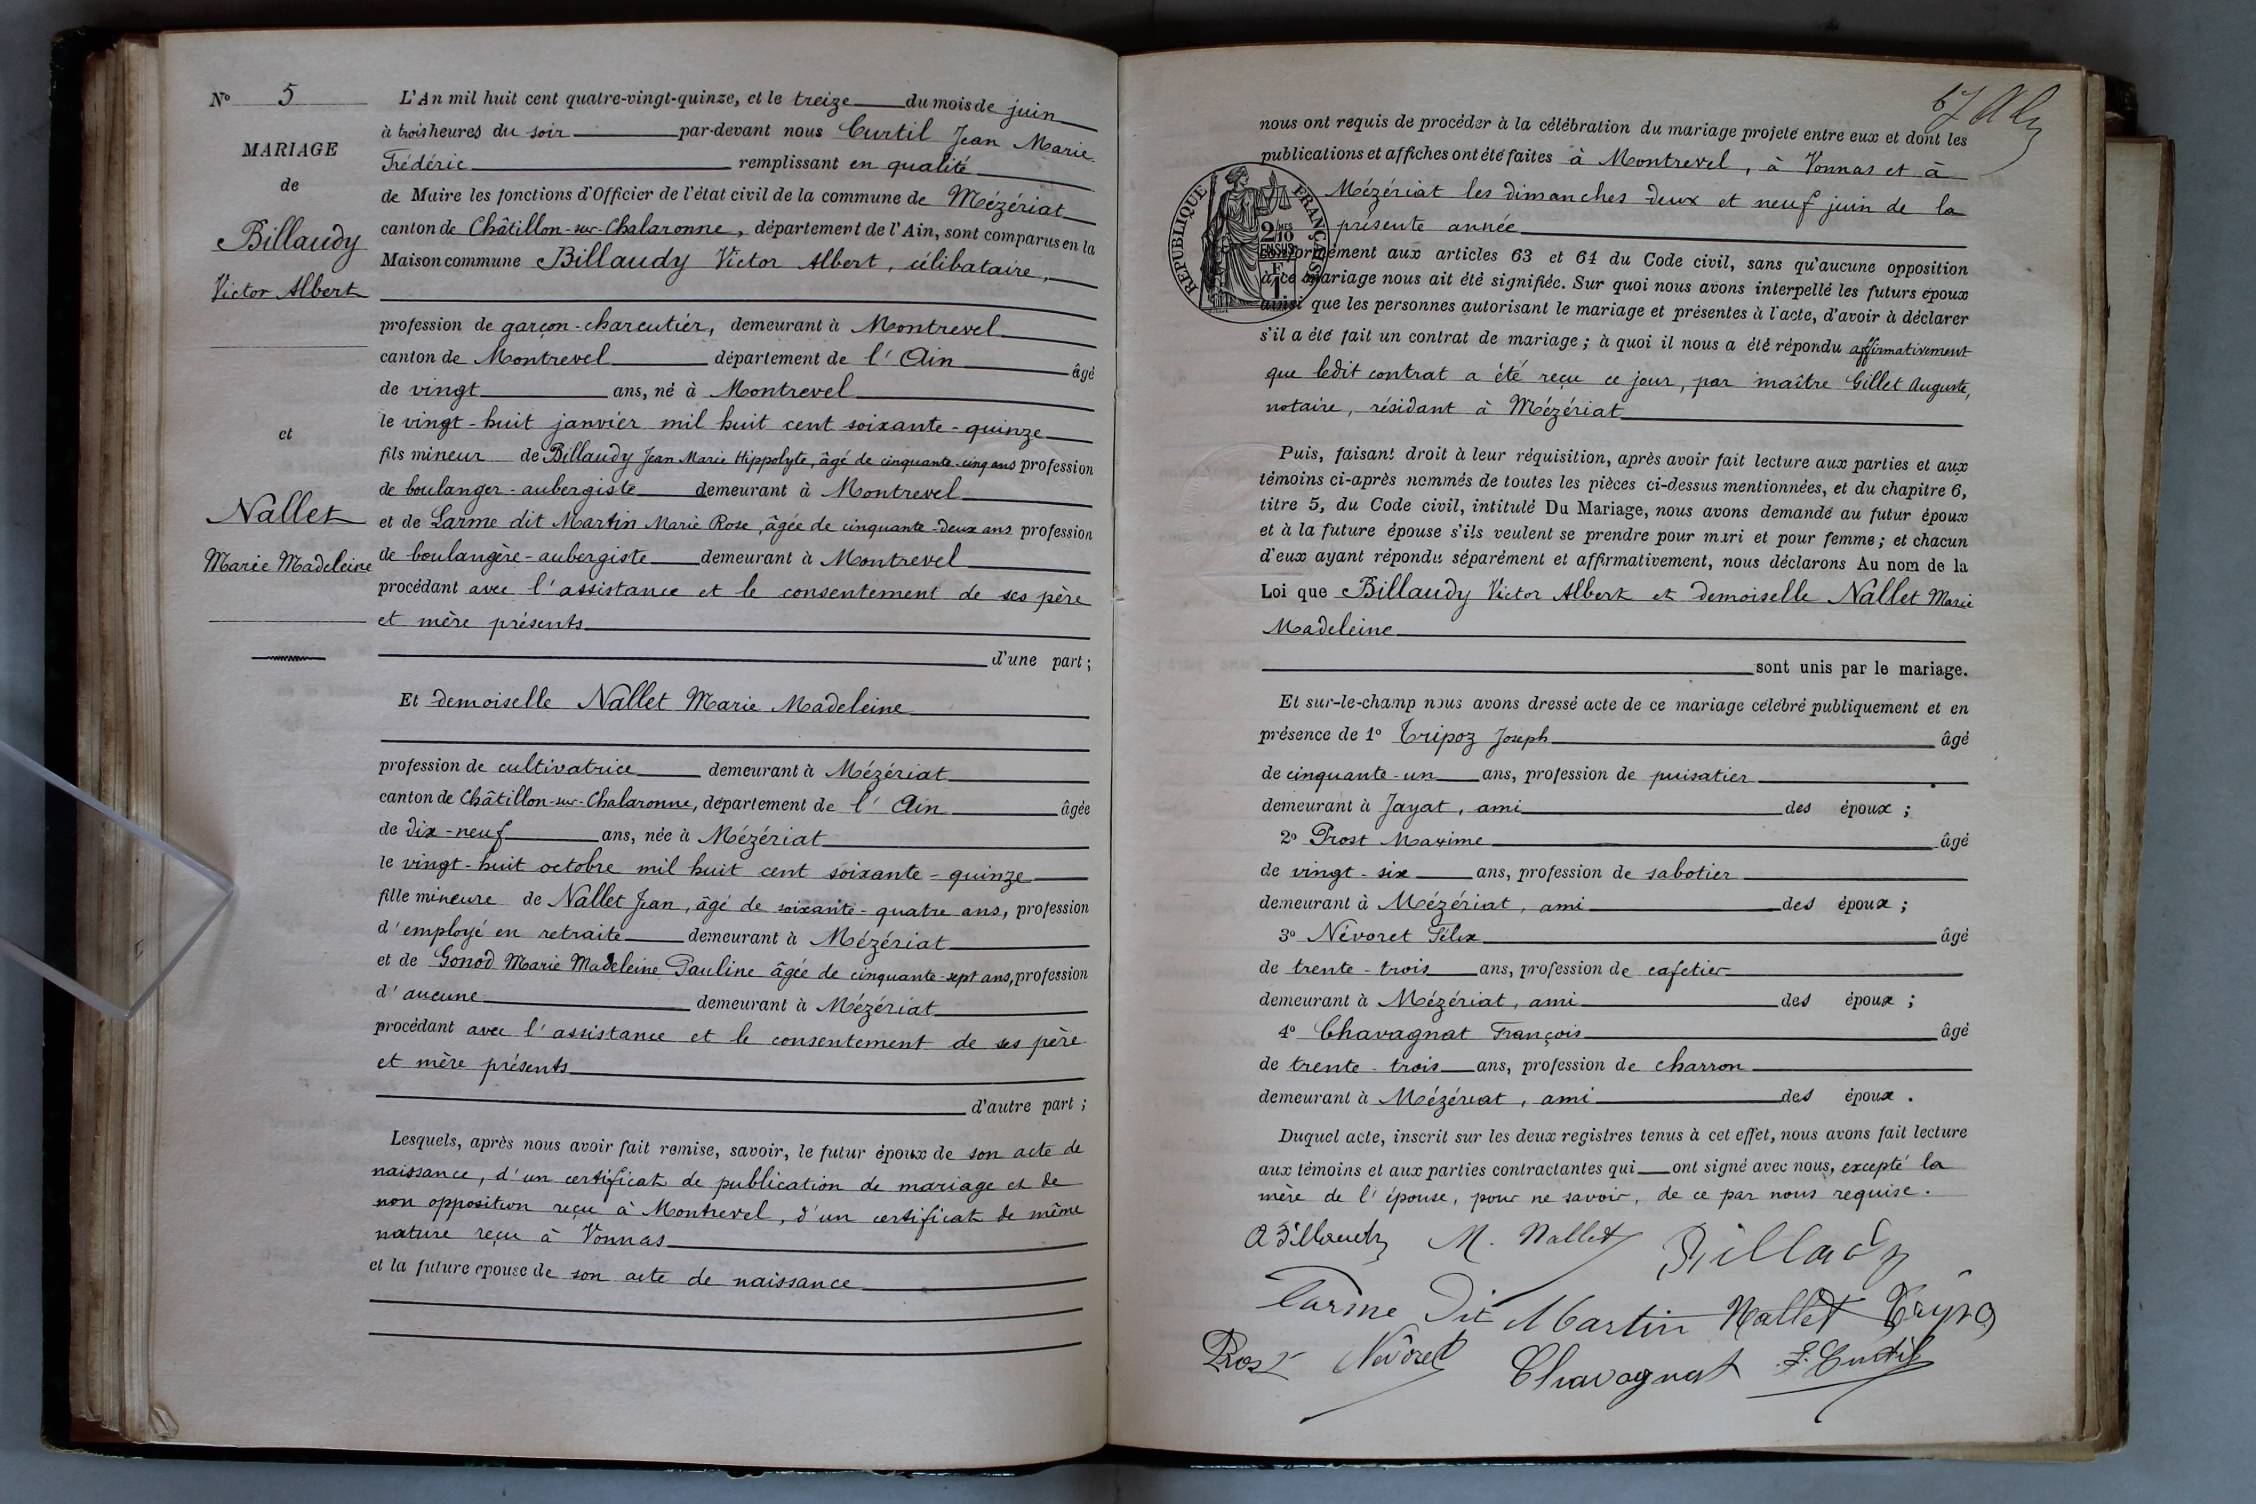 N° 5
MARIAGE
de
Billaudy
Victor Albert
et
Nallet
Marie Madeleine
L'An mil huit cent quatre-vingt-quinze, et le treize du mois de juin
à trois heures du soir par-devant nous Curtil Jean Marie
Frédéric remplissant en qualité
de Maire les fonctions d'Officier de l'état civil de la commune de Mézériat
canton de Châtillon-sur-Chalaronne, département de l'Ain, sont comparus en la
Maison commune Billaudy Victor Albert, célibataire,
profession de garçon-charcutier, demeurant à Montrevel
canton de Montrevel département de l'Ain âgé
de vingt ans, né à Montrevel
le vingt-huit janvier mil huit cent soixante-quinze
fils mineur de Billaudy Jean Marie Hippolyte, âgé de cinquante-cinq ans profession
de boulanger-aubergiste demeurant à Montrevel
et de Larme dit Martin Marie Rose, âgée de cinquante-deux ans profession
de boulangère-aubergiste demeurant à Montrevel
procédant avec l'assistance et le consentement de ses père
et mère présents
d'une part ;
Et demoiselle Nallet Marie Madeleine
profession de cultivatrice demeurant à Mézériat
canton de Châtillon-sur-Chalaronne, département de l'Ain âgée
de dix-neuf ans, née à Mézériat
le vingt-huit octobre mil huit cent soixante-quinze
fille mineure de Nallet Jean, âgé de soixante-quatre ans, profession
d'employé en retraite demeurant à Mézériat
et de Gonod Marie Madeleine Pauline âgée de cinquante-sept ans, profession
d'aucune demeurant à Mézériat
procédant avec l'assistance et le consentement de ses père
et mère présents
d'autre part ;
Lesquels, après nous avoir fait remise, savoir, le futur époux de son acte de
naissance, d'un certificat de publication de mariage et de
non opposition reçu à Montrevel, d'un certificat de même
nature reçu à Vonnas
et la future epouse de son acte de naissance
nous ont requis de procéder à la célébration du mariage projeté entre eux et dont les
publications et affiches ont été faites à Montrevel, à Vonnas et à
Mézériat les dimanches deux et neuf juin de la
présente année
RÉPUBLIQUE FRANÇAISE
2/10 EN SUS
1F
conformément aux articles 63 et 64 du Code civil, sans qu'aucune opposition
à ce mariage nous ait été signifiée. Sur quoi nous avons interpellé les futurs époux
ainsi que les personnes autorisant le mariage et présentes à l'acte, d'avoir à déclarer
s'il a été fait un contrat de mariage ; à quoi il nous a été répondu affirmativement
que ledit contrat a été reçu ce jour, par maître Gillet Auguste,
notaire, résidant à Mézériat
Puis, faisant droit à leur réquisition, après avoir fait lecture aux parties et aux
témoins ci-après nommés de toutes les pièces ci-dessus mentionnées, et du chapitre 6,
titre 5, du Code civil, intitulé Du Mariage, nous avons demandé au futur époux
et à la future épouse s'ils veulent se prendre pour mari et pour femme ; et chacun
d'eux ayant répondu séparément et affirmativement, nous déclarons Au nom de la
Loi que Billaudy Victor Albert et demoiselle Nallet Marie
Madeleine
sont unis par le mariage.
Et sur-le-champ nous avons dressé acte de ce mariage célébré publiquement et en
présence de 1° Tripoz Joseph âgé
de cinquante-un ans, profession de puisatier
demeurant à Jayat, ami des époux ;
2° Prost Maxime âgé
de vingt-six ans, profession de sabotier
demeurant à Mézériat, ami des époux ;
3° Névoret Félix âgé
de trente-trois ans, profession de cafetier
demeurant à Mézériat, ami des époux ;
4° Chavagnat François âgé
de trente-trois ans, profession de charron
demeurant à Mézériat, ami des époux.
Duquel acte, inscrit sur les deux registres tenus à cet effet, nous avons fait lecture
aux témoins et aux parties contractantes qui ont signé avec nous, excepté la
mère de l'épouse, pour ne savoir, de ce par nous requise.
A Billaudy M. Nallet Billaudy
Larme Dit Martin Nallet Tripoz
Prost Névoret Chavagnat F. Curtil